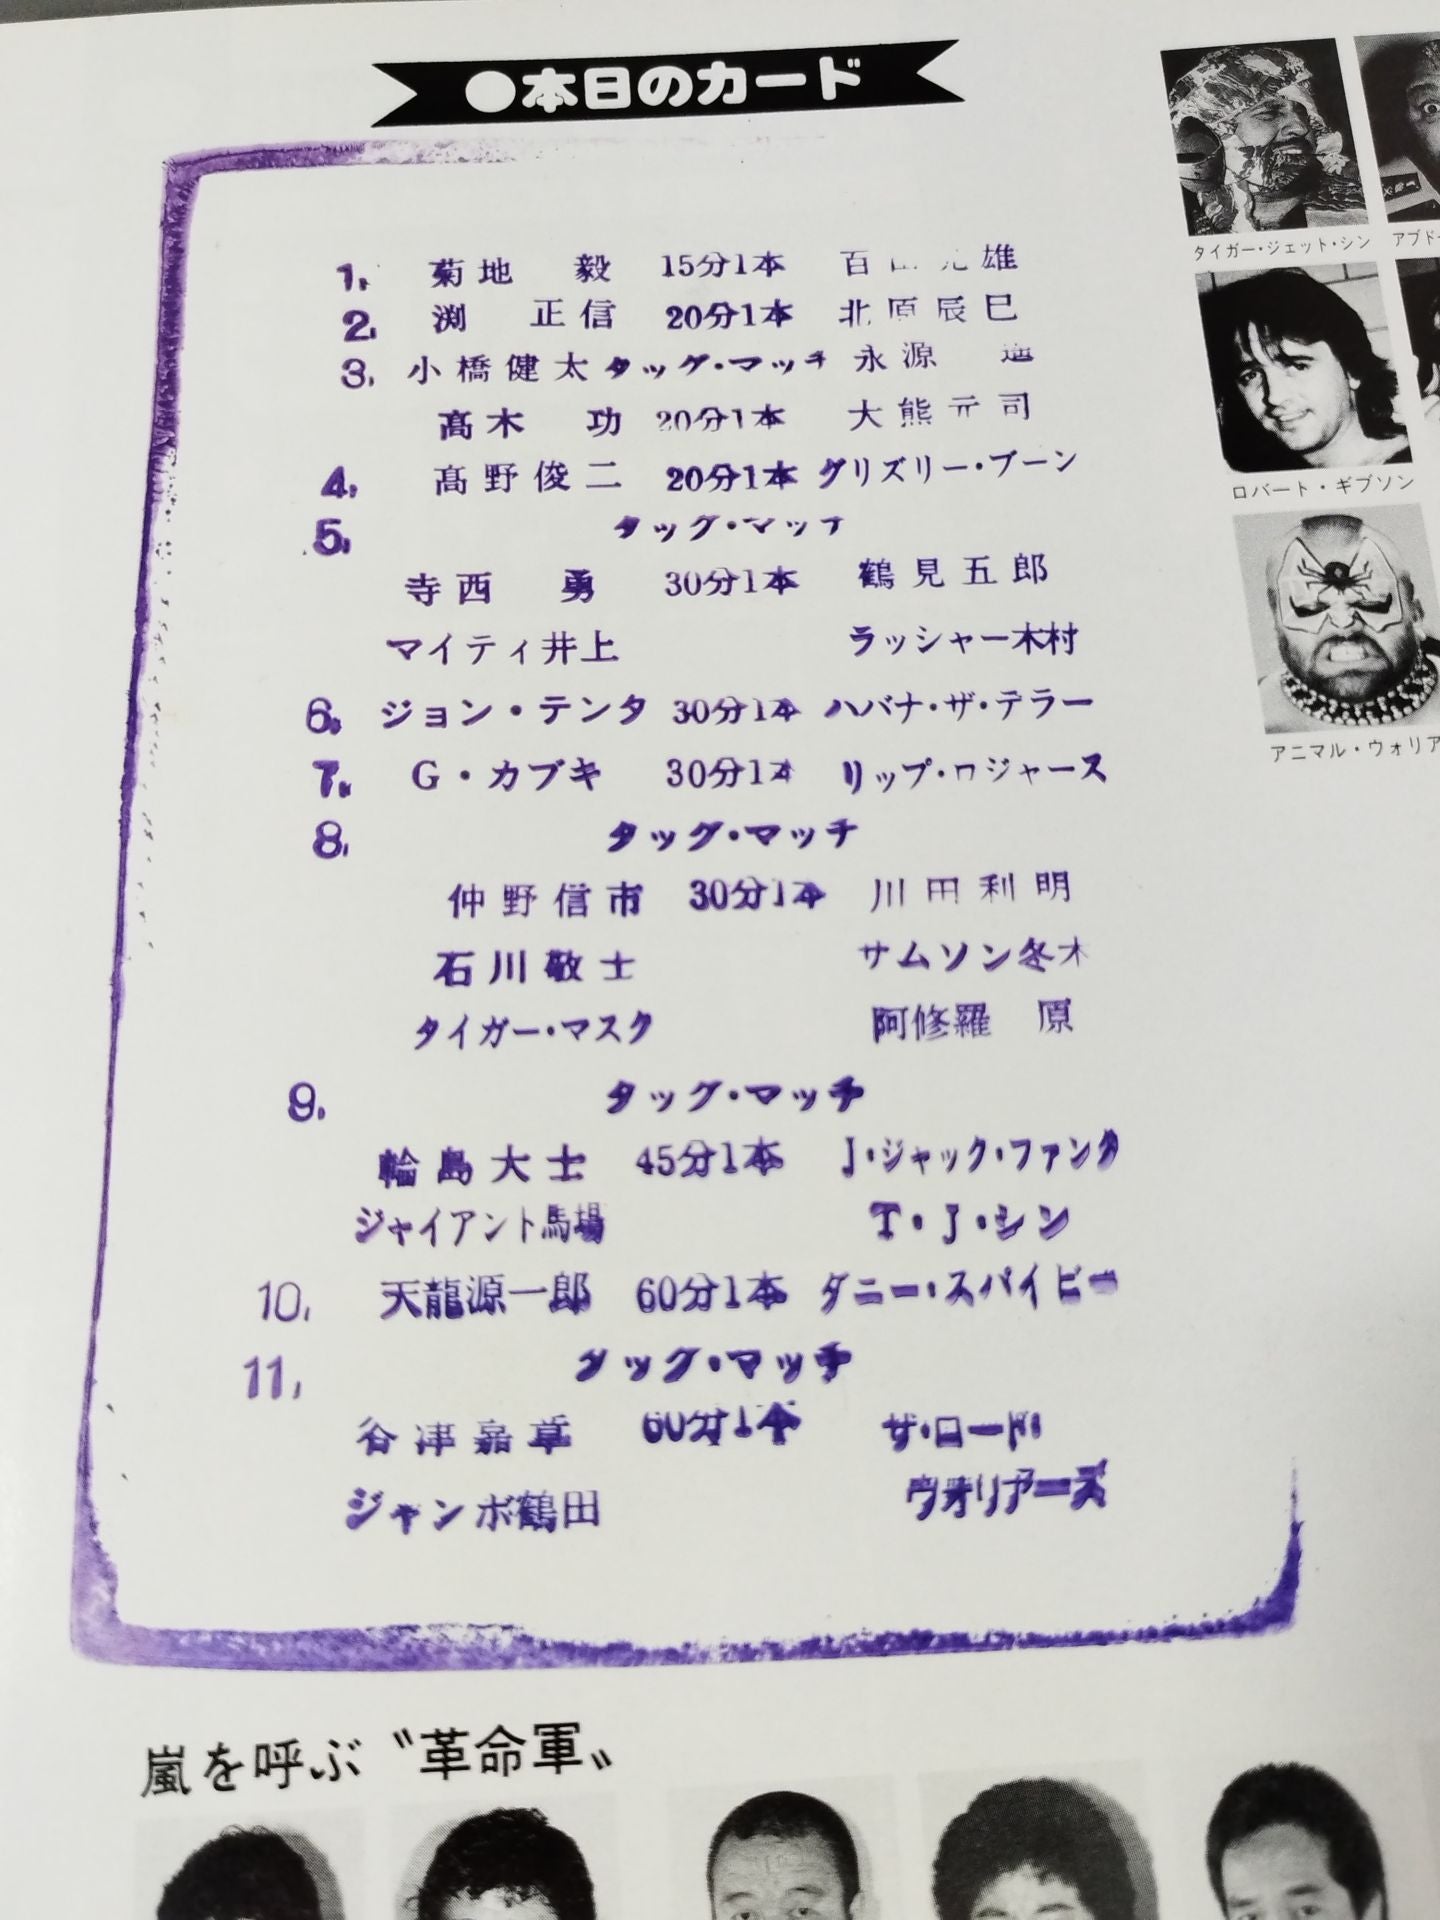 ●本日のカード
1. 菊地 毅 15分1本 百田光雄
2. 渕 正信 20分1本 北原辰巳
3. 小橋健太 タッグ・マッチ 永源 遥
髙木 功 20分1本 大熊元司
4. 髙野俊二 20分1本 グリズリー・ブーン
5. タッグ・マッチ
寺西 勇 30分1本 鶴見五郎
マイティ井上 ラッシャー木村
6. ジョン・テンタ 30分1本 ハバナ・ザ・テラー
7. G・カブキ 30分1本 リップ・ロジャース
8. タッグ・マッチ
仲野信市 30分1本 川田利明
石川敬士 サムソン冬木
タイガー・マスク 阿修羅 原
9. タッグ・マッチ
輪島大士 45分1本 J・ジャック・ファンタ
ジャイアント馬場 T・J・シン
10. 天龍源一郎 60分1本 ダニー・スパイビー
11. タッグ・マッチ
谷津嘉章 60分1本 ザ・ロード・
ジャンボ鶴田 ウォリアーズ
タイガー・ジェット・シン アブド
ロバート・ギブソン
アニマル・ウォリア
嵐を呼ぶ〝革命軍〟